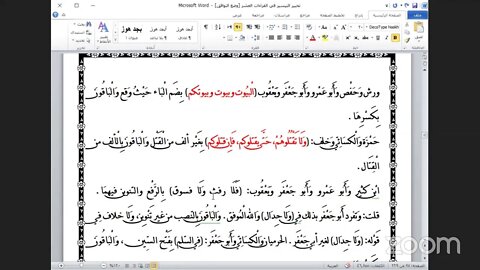 تحبير التيسير في القراءات العشر [وضع التوافق] - Microsoft Word
ورش وَحَفْص وَأَبُو عَمْرو وَأَبُو جَعْفَر وَيَعْقُوب (الْبيُوت وبيوت وبيوتكم) بِضَم الْبَاء حَيْثُ وَقع وَالْبَاقُونَ
بِكَسْرِهَا .
حَمْزَة وَالْكسَائِيّ وَخلف: (وَلَا تَقْتُلُوهُمْ، حَتَّى يقتلوكم، فَإِن قتلوكم) بِغَيْر ألف من الْقَتْل وَالْبَاقُونَ بِالْألف من
الْقِتَال .
ابْن كثير وَأَبُو عَمْرو وَأَبُو جَعْفَر وَيَعْقُوب: (فَلَا رفث وَلَا فسوق) بِالرَّفْع والتنوين فيهمَا .
قلت: وَتفرد أَبُو جَعْفَر بذلك فِي (وَلَا جِدَال) وَالله الْمُوفق. وَالْبَاقُونَ بِالنّصب من غير تَنْوِين، وَلَا خلاف فِي
قَوْله: (وَلَا جِدَال) لغير أبي جَعْفَر. الحرميان وَالْكسَائِيّ وَأَبُو جَعْفَر: (فِي السّلم) بِفَتْح السِّين ، وَالْبَاقُونَ
zoom